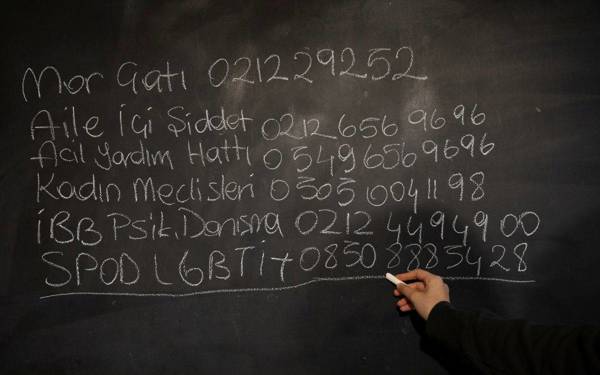 Mor Çatı 021229252
Aile İçi Şiddet 0212 656 9696
Acil Yardım Hattı 0 549 656 9696
Kadın Meclisleri 0 505 004 11 98
İBB Psik. Danışma 0212 449 49 00
SPOD LGBTİ+ 0850 888 5428